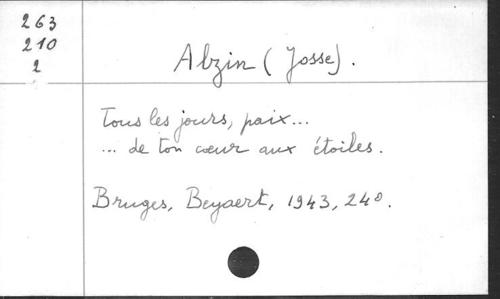 263
210
2
Alzin (Josse).
Tous les jours, paix...
... de ton cœur aux étoiles.
Bruges, Beyaert, 1943, 24º.